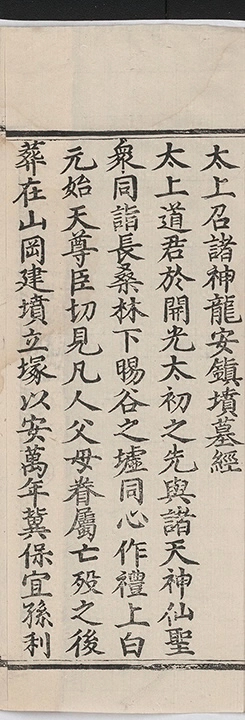 太上召諸神龍安鎮墳墓經
太上道君於開光太初之先與諸天神仙聖
衆同詣長桑林下暘谷之墟同心作禮上白
元始天尊臣切見凡人父母眷屬亡殁之後
葬在山岡建墳立塚以安萬年冀保宜孫利